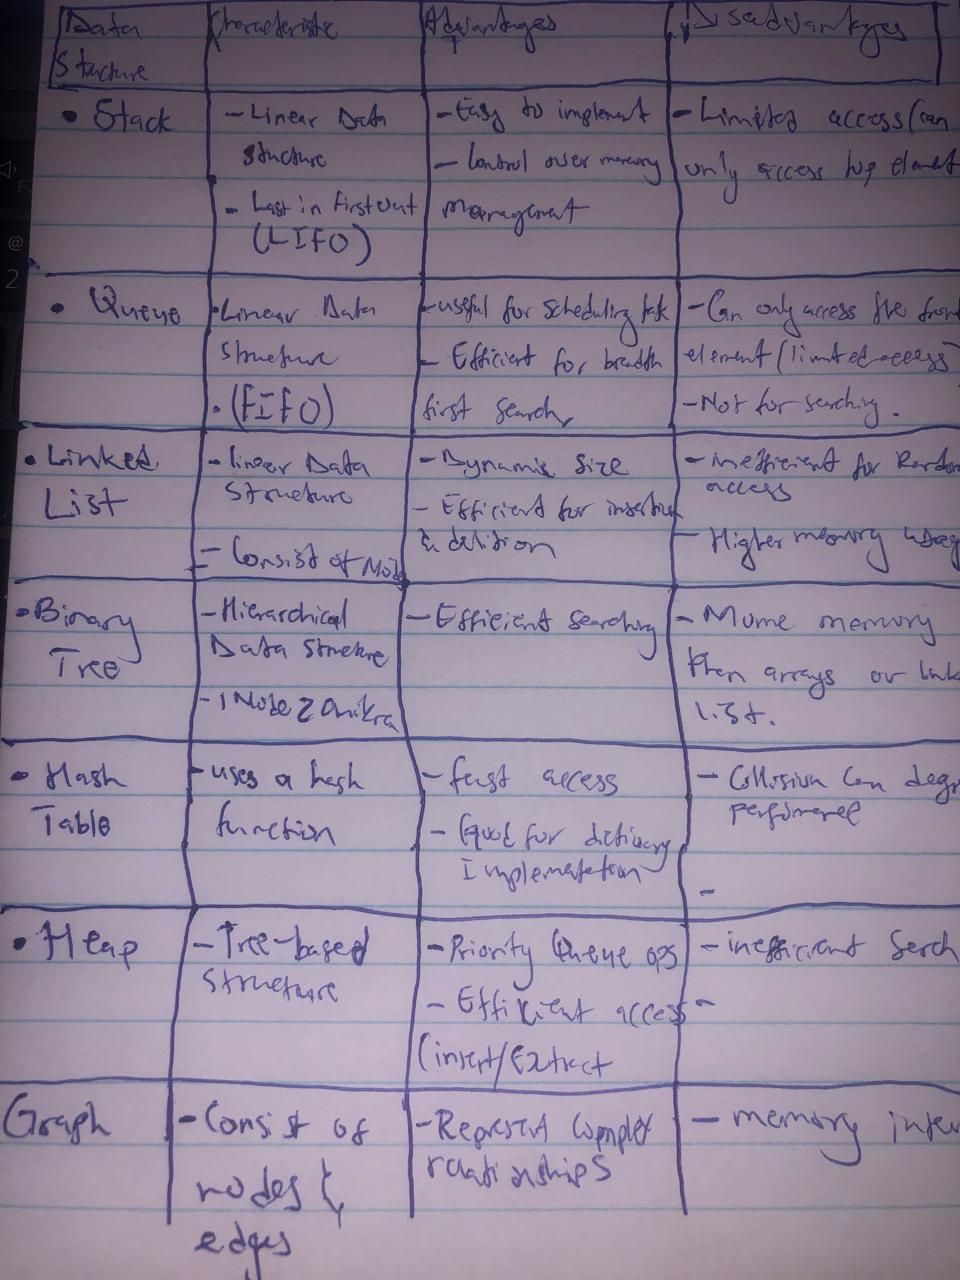 Data
Structure
Charecteristic
Advantages
Disadvantages
• Stack
- Linear Data
Structure
- Last in first Out
(LIFO)
- Easy to implement
- Control over memory
management
- Limited access (can
only access top element
• Queue
• Linear Data
Structure
• (FIFO)
- useful for scheduling task
- Efficient for breadth
first search
- Can only access the front
element (limited access)
- Not for searching.
• Linked
List
- linear Data
Structure
- Consist of Node
- Dynamic Size
- Efficient for insertion
& deletion
- inefficient for Random
access
- Higher memory usag
• Binary
Tree
- Hierarchical
Data Structure
- 1 Node 2
- Efficient Searching
- memory
then arrays or Link
List.
• Hash
Table
- uses a hash
function
- fast access
- Good for dictionary
Implementation
- Collision can degr
-
• Heap
- Tree-based
Structure
- Priority Queue ops
- Efficient access
(insert/Extract
- inefficient Serch
-
Graph
- Consist of
nodes &
edges
- Represent Complex
relationships
- memory inten
@
2